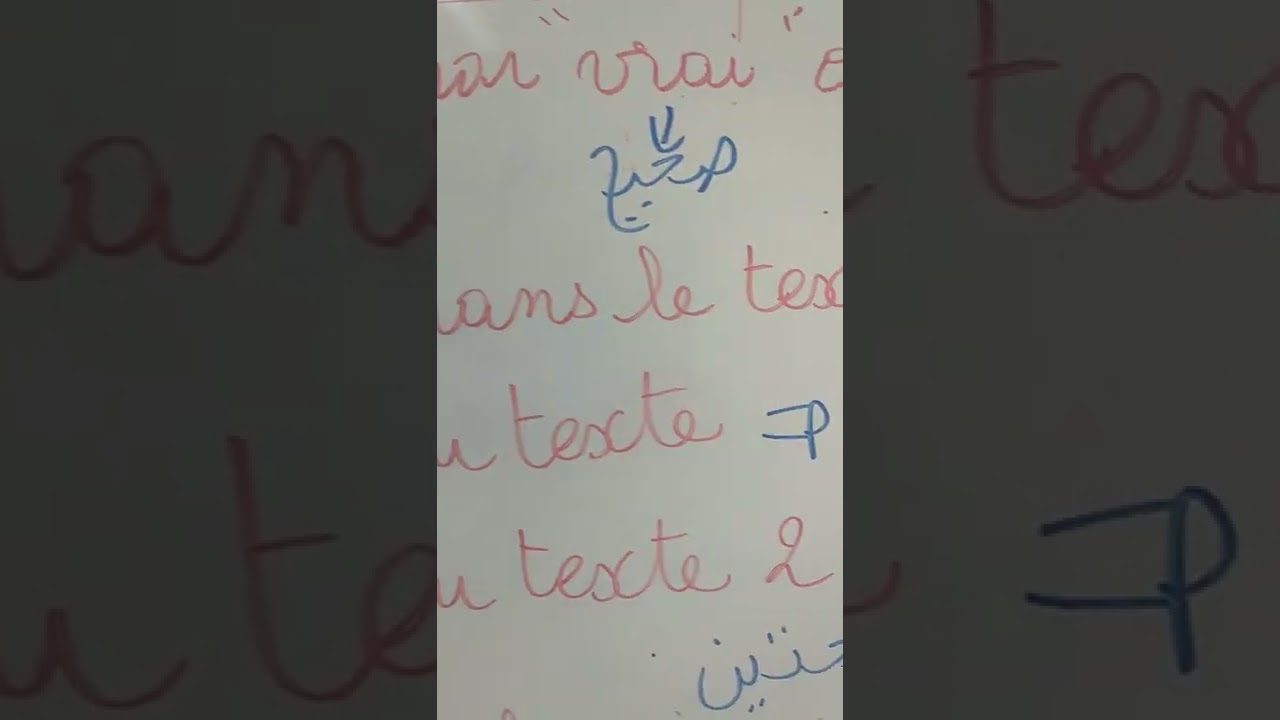 "vrai"
صحيح
ans le tex
texte ⇒
texte 2